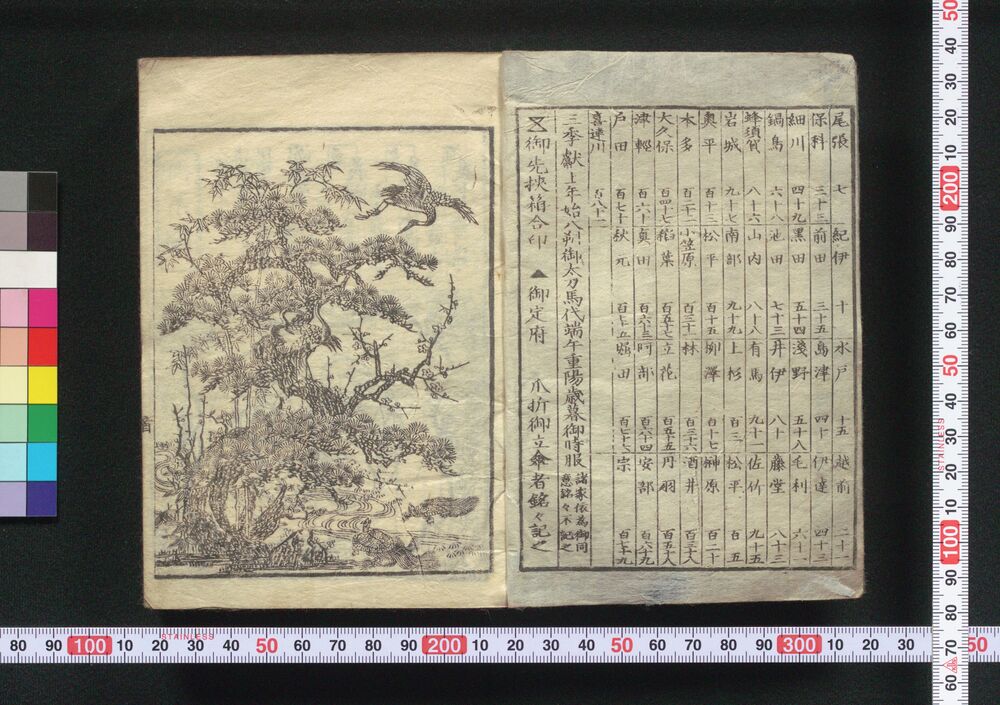 尾張 七 紀伊 十 水戸 十五 越前 二十
保科 三十三 前田 三十五 島津 四十 伊達 四十二
細川 四十九 黒田 五十四 淺野 五十八 毛利 六十
鍋島 六十八 池田 七十三 井伊 八十 藤堂 八十三
蜂須賀 八十六 山内 八十八 有馬 九十一 佐竹 九十五
岩城 九十七 南部 九十九 上杉 百三 松平 百五
奥平 百十三 松平 百十五 柳澤 百十七 榊原 百二十
本多 百二十二 小笠原 百三十一 林 百三十六 酒井
大久保 百四十七 稲葉 百五十七 立花 百五十五 丹羽 百五十八
津輕 百六十 真田 百六十三 阿部 百六十四 安部 百六十九
戸田 百七十 秋元 百七十五 堀田 百七十七 宗 百七十九
喜連川 百八十一
三季献上年始八朔御太刀馬代端午重陽歳暮御時服 諸家依為御同意銘々不記之
御先挾箱合印 ▲御定府 爪折御立傘者銘々記之